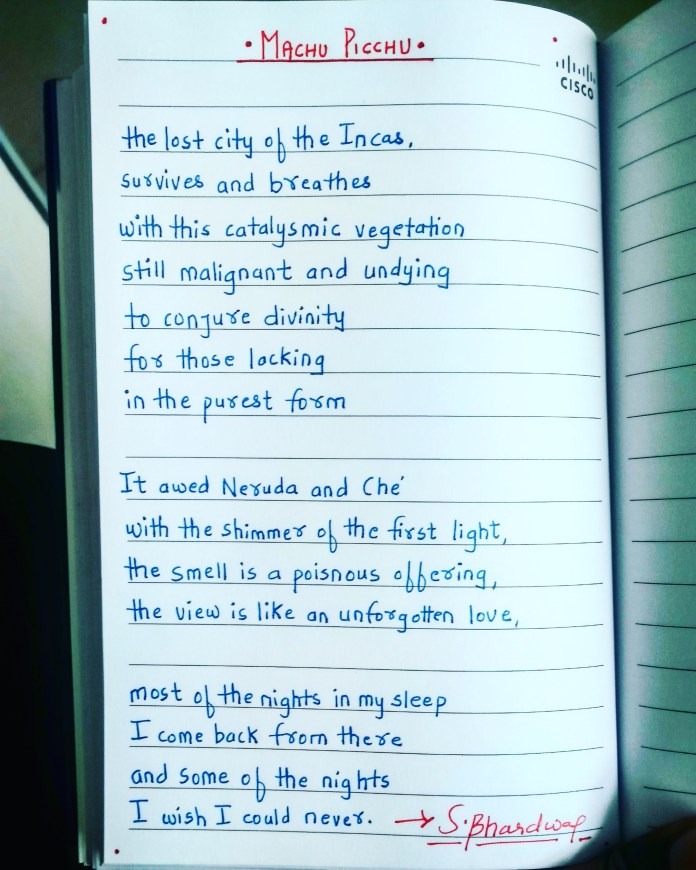 • MACHU PICCHU •
CISCO
the lost city of the Incas,
survives and breathes
with this catalysmic vegetation
still malignant and undying
to conjure divinity
for those lacking
in the purest form
It awed Neruda and Ché
with the shimmer of the first light,
the smell is a poisnous offering,
the view is like an unforgotten love,
most of the nights in my sleep
I come back from there
and some of the nights
I wish I could never. → S. Bhardwaj